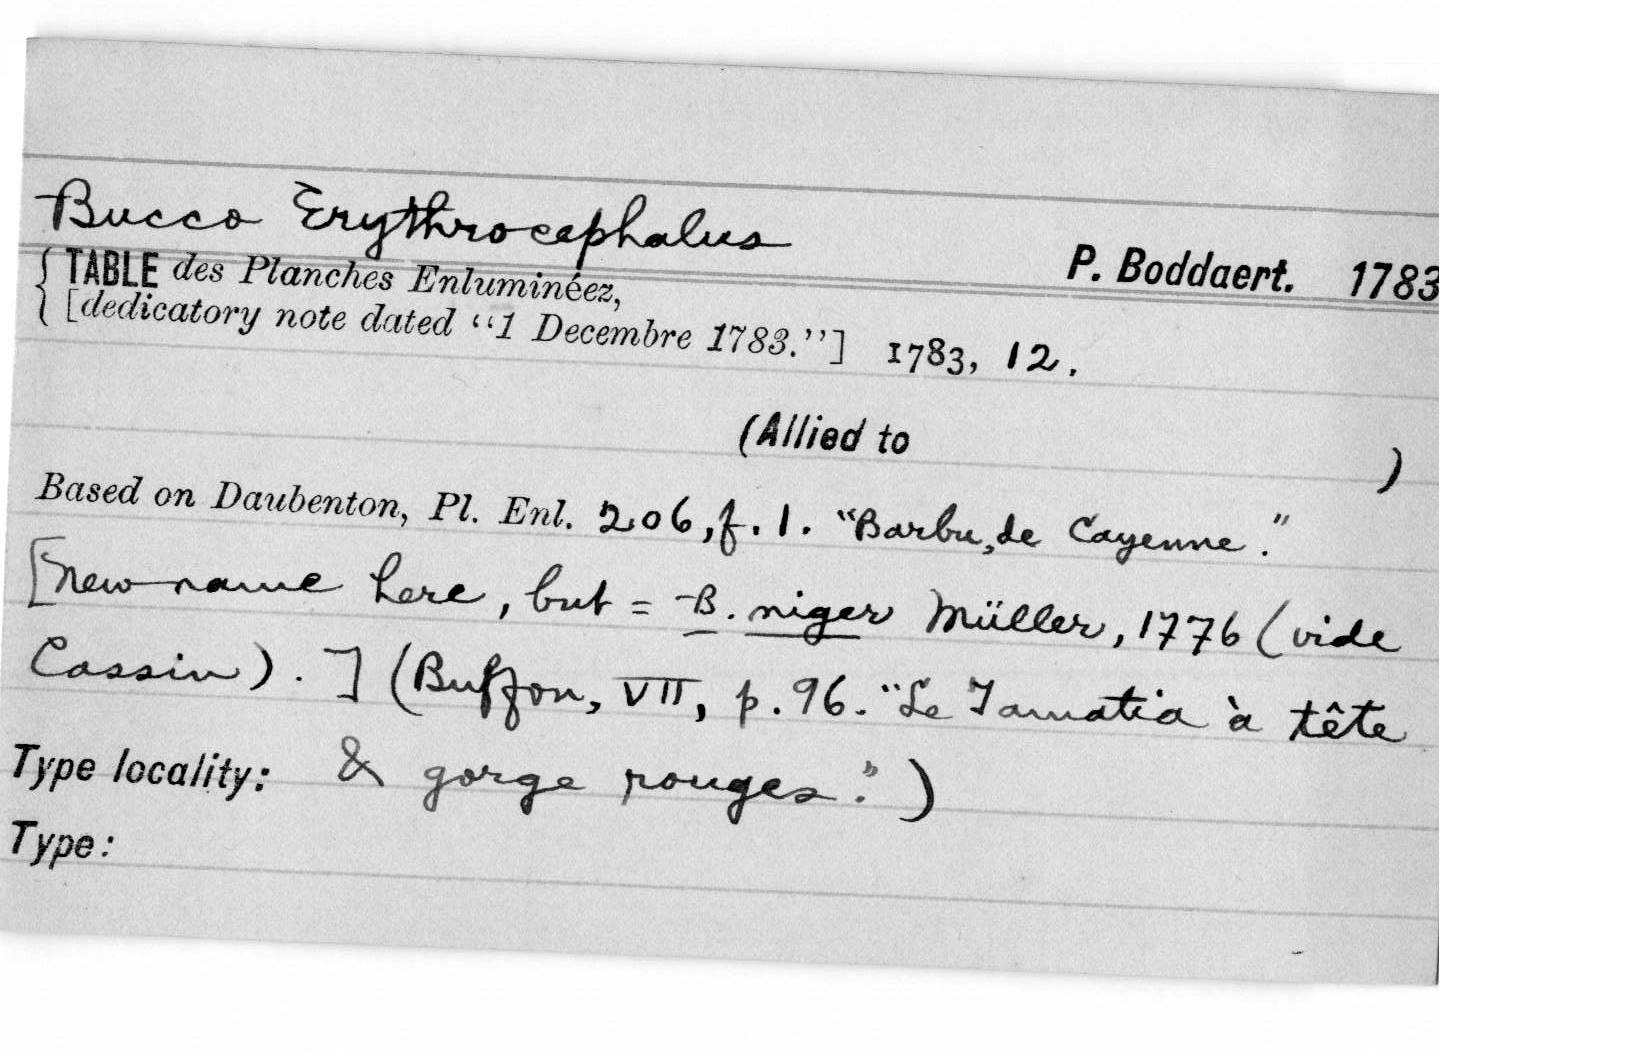 Bucco Erythrocephalus
P. Boddaert. 1783
TABLE des Planches Enluminéez,
[dedicatory note dated "1 Decembre 1783."] 1783, 12.
(Allied to )
Based on Daubenton, Pl. Enl. 206, f. 1. "Barbu, de Cayenne."
[New name here, but = B. niger Müller, 1776 (vide
Cassin). ] (Buffon, VII, p. 96. "Le Tamatia à tête
Type locality: & gorge rouges.")
Type: